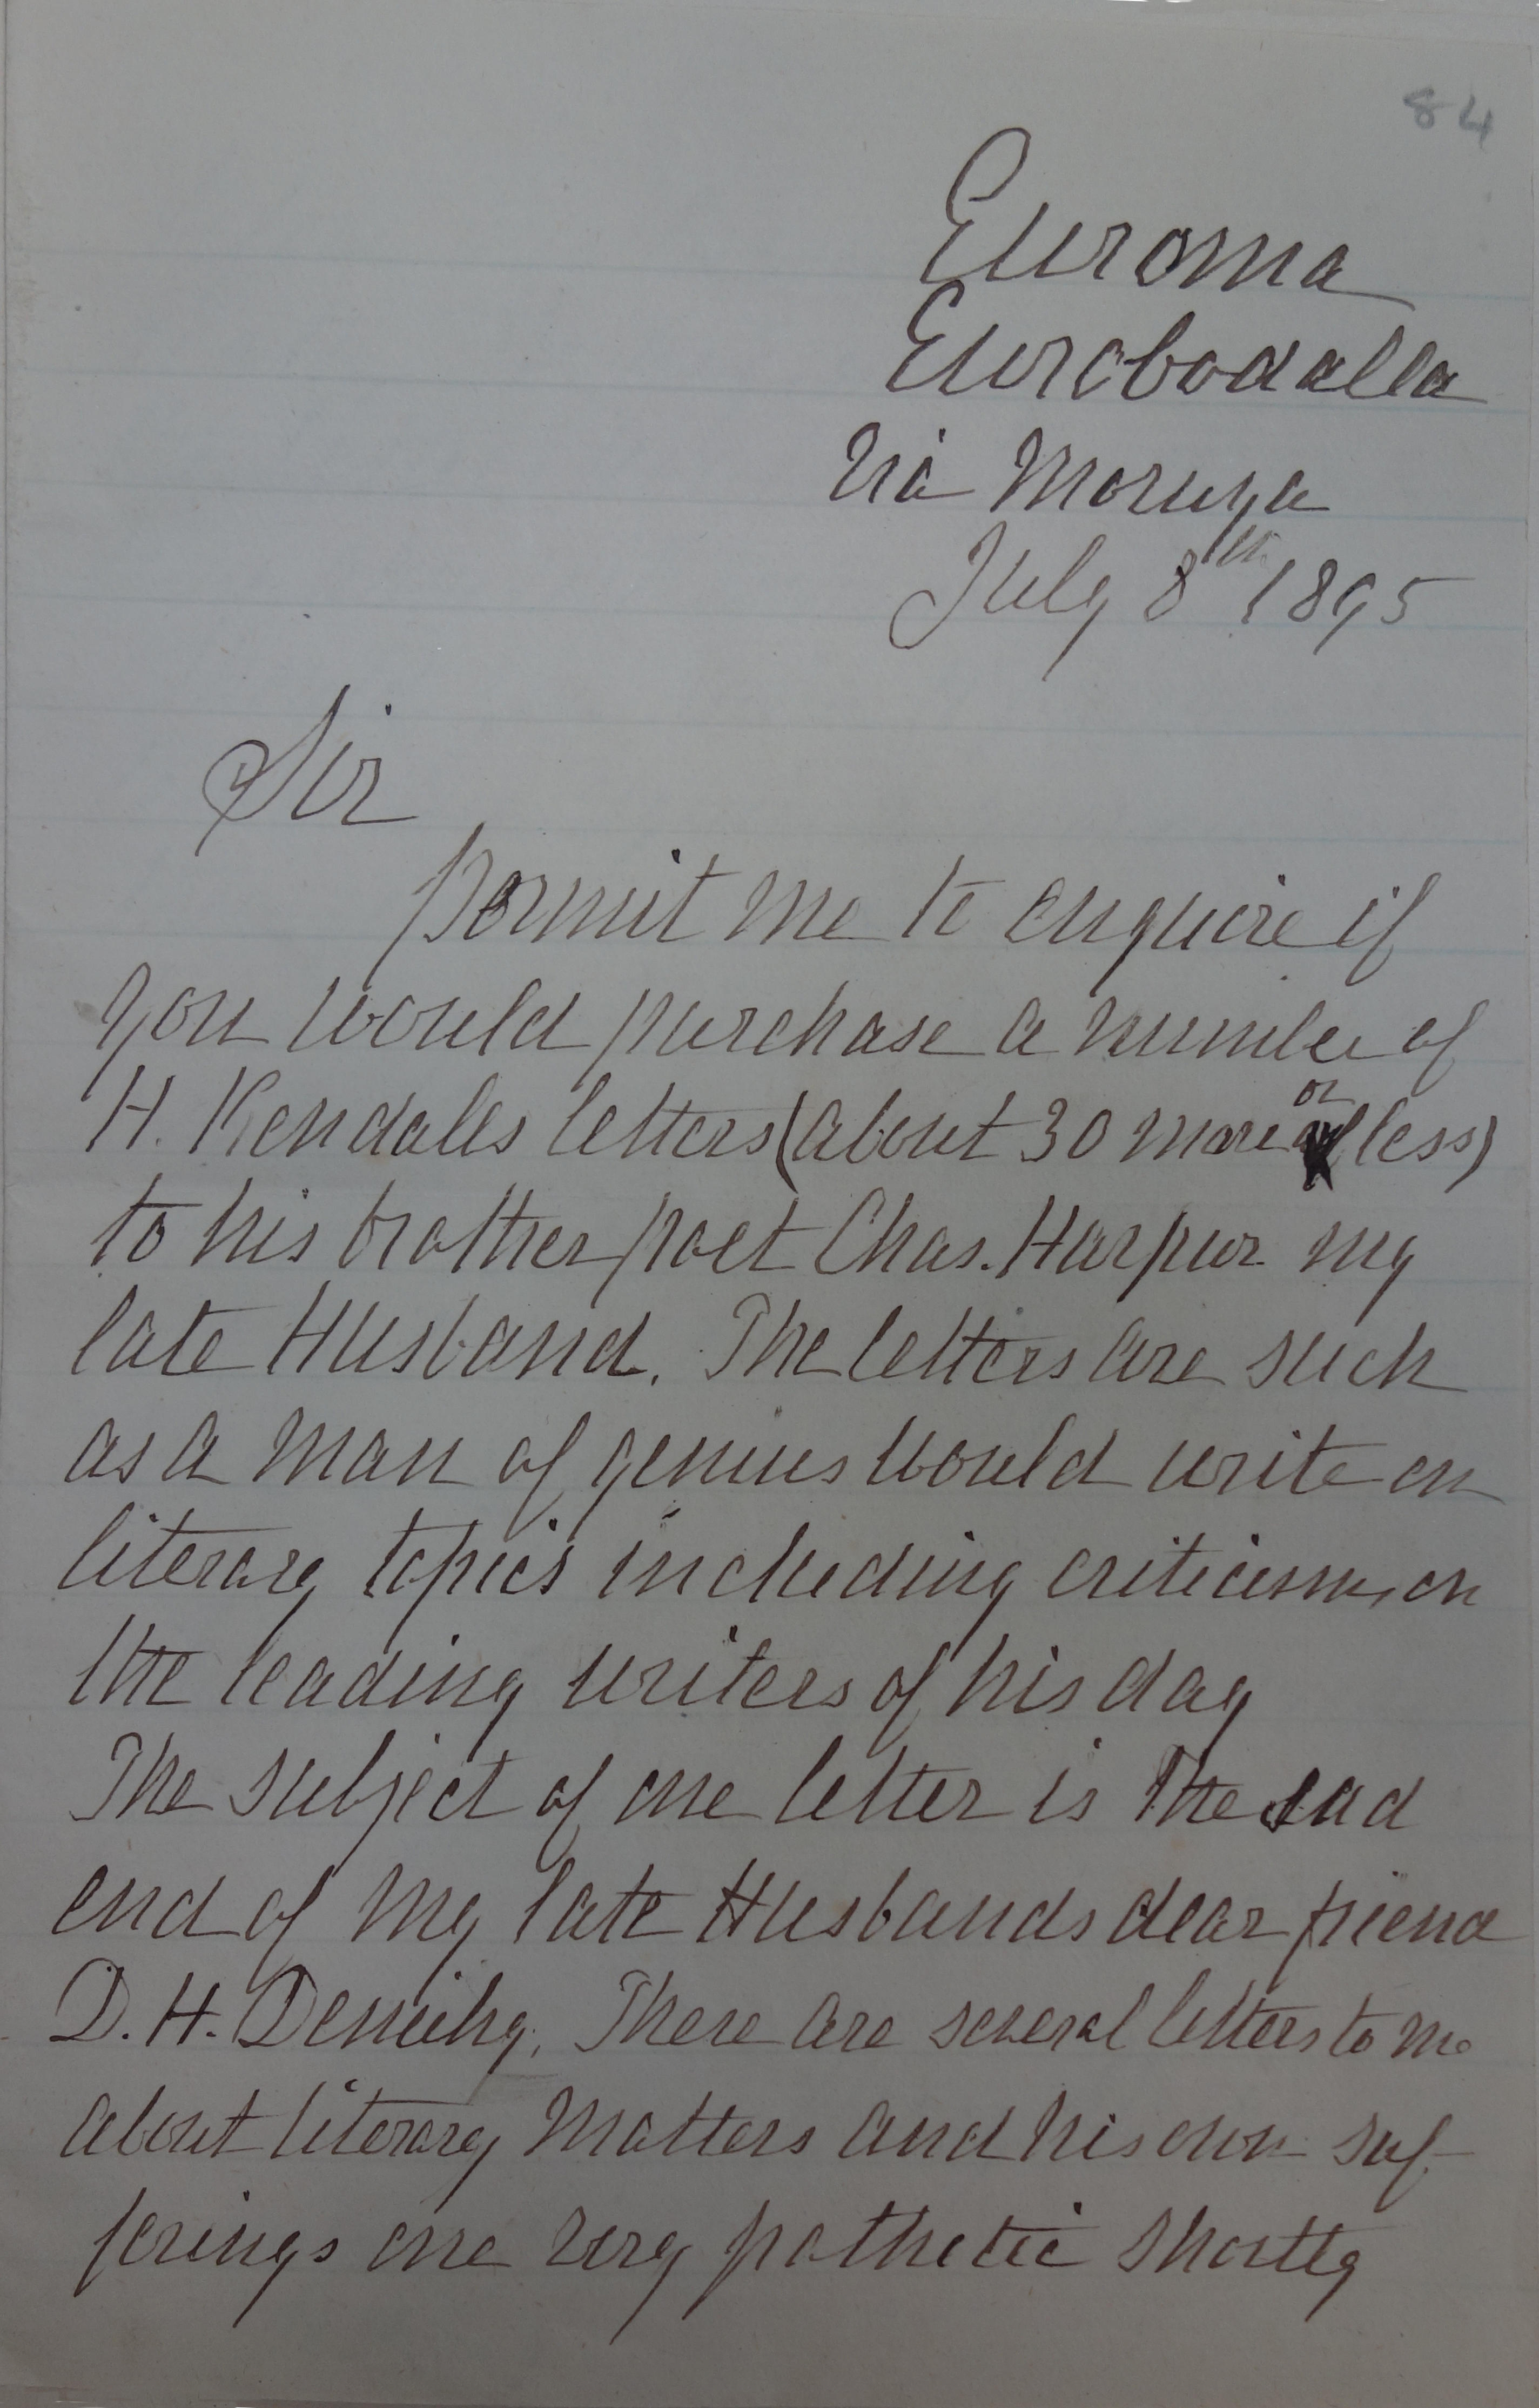 84
Euroma
Eurobodalla
Via Moruya
July 8th 1895
Sir
Permit me to enquire if
you would purchase a number of
H. Kendalls letters (about 30 more or less)
to his brother poet Chas. Harpur my
late Husband. The letters are such
as a man of genius would write on
literary topics including criticisms on
the leading writers of his day
The subject of one letter is the sad
end of my late Husbands dear friend
D. H. Deniehy. There are several letters to me
about literary matters and his own suf-
ferings one very pathetic shortly